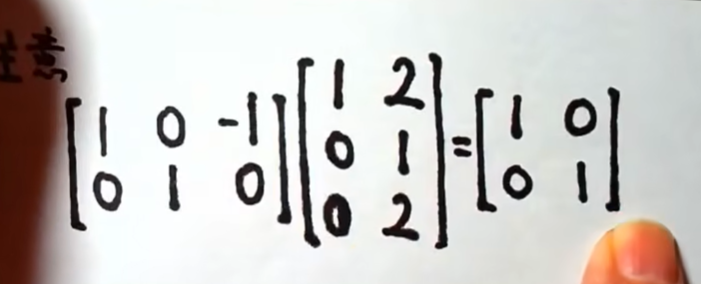 注意
[1 0 -1; 0 1 0][1 2; 0 1; 0 2]=[1 0; 0 1]